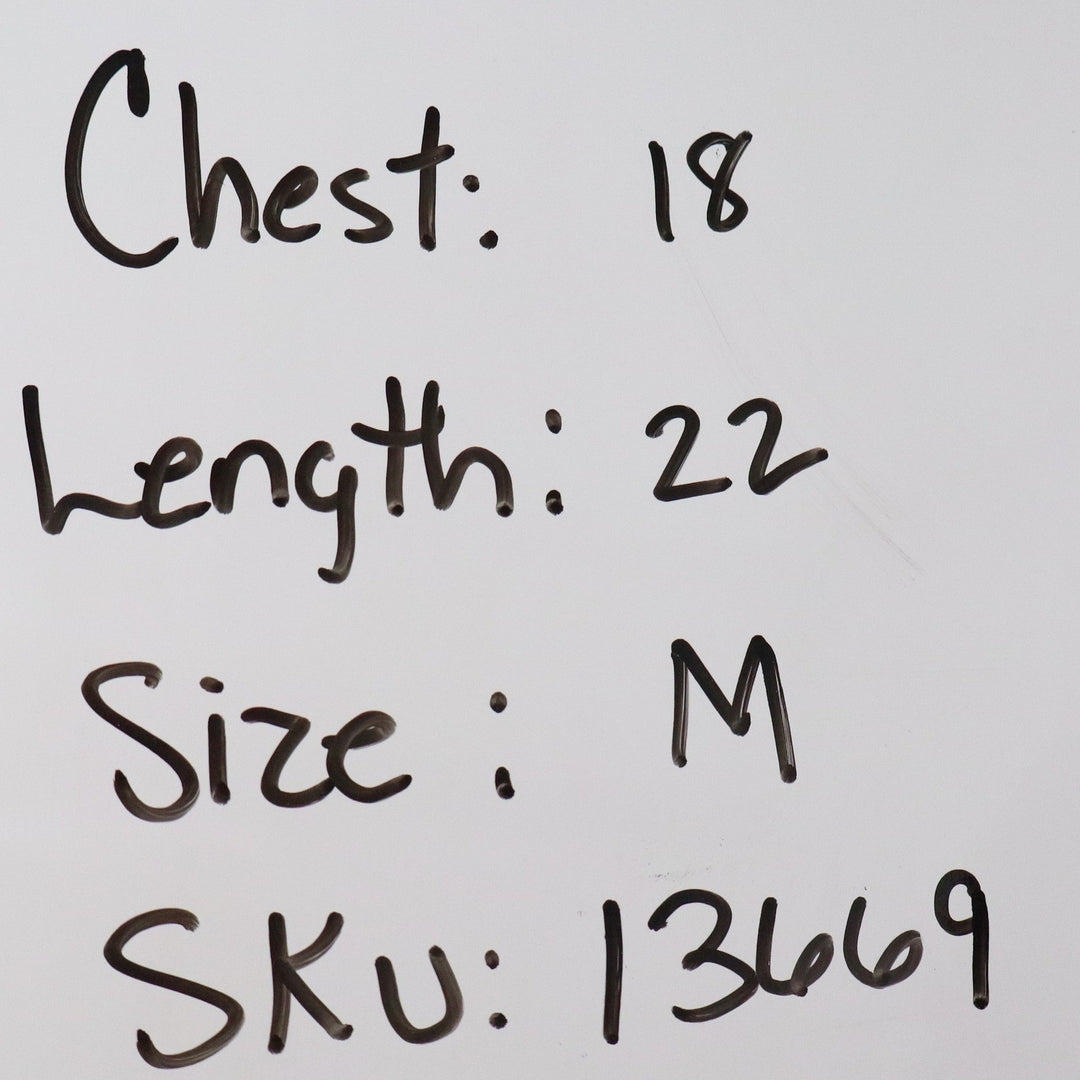 Chest: 18
Length: 22
Size: M
SKU: 13669